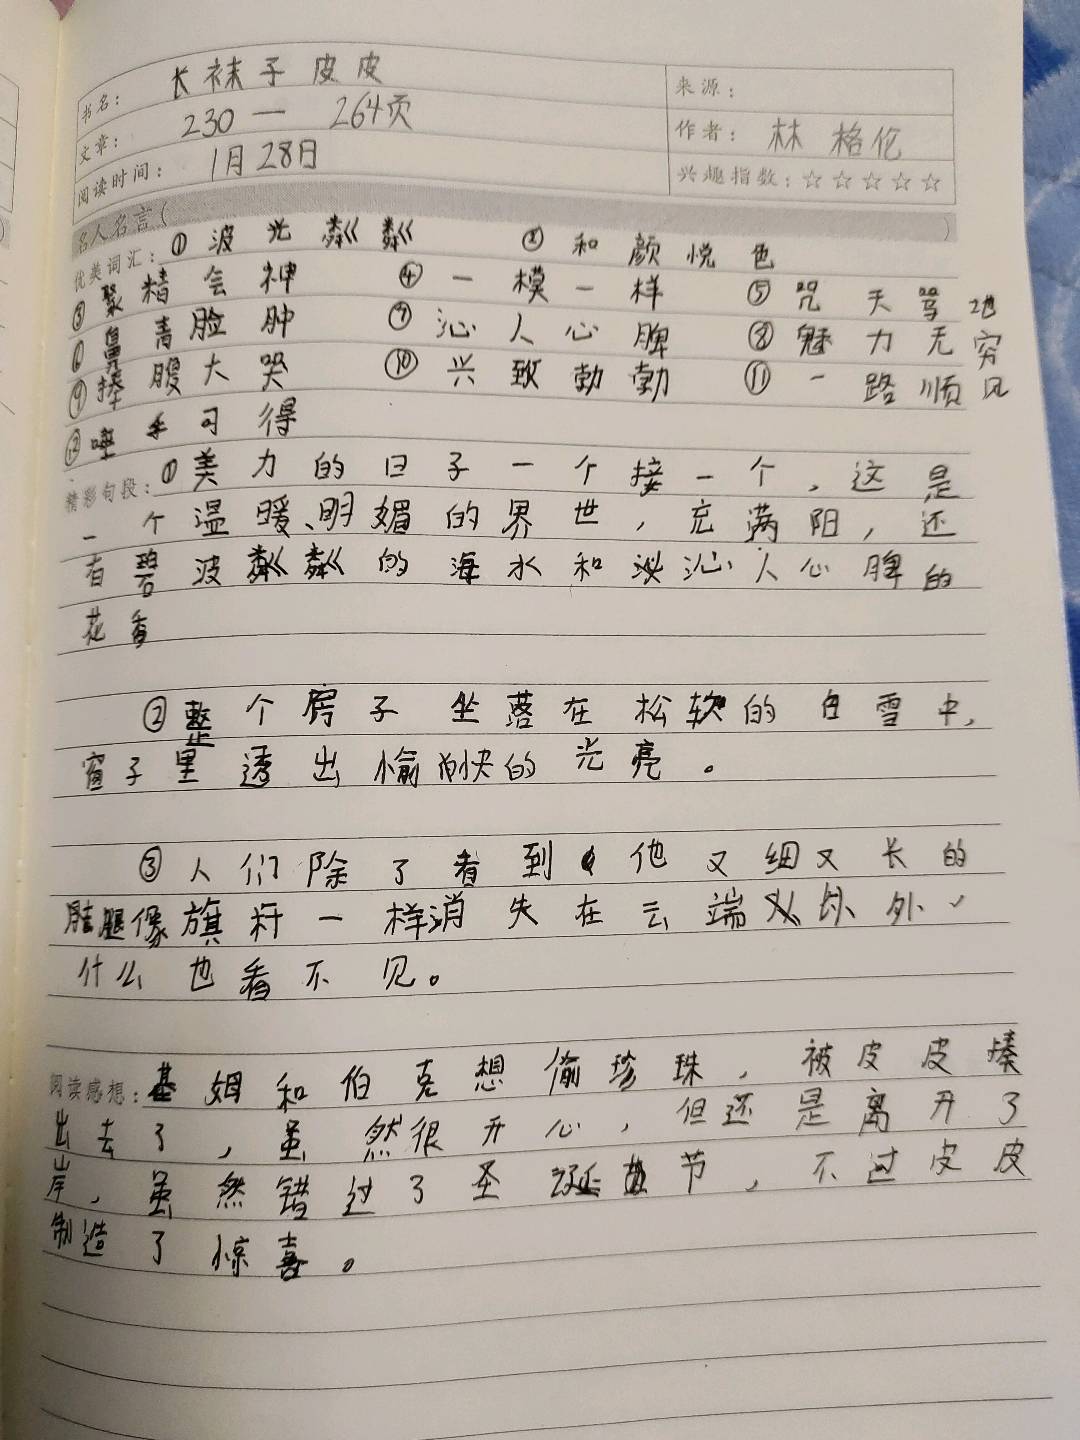 书名：长袜子皮皮
来源：
文章：230一264页
作者：林格伦
阅读时间：1月28日
兴趣指数：☆☆☆☆☆
名人名言（ ）
优美词汇：①波光粼粼 ②和颜悦色
③聚精会神 ④一模一样 ⑤咒天骂地
⑥鼻青脸肿 ⑦沁人心脾 ⑧魅力无穷
⑨捧腹大哭 ⑩兴致勃勃 ⑪一路顺风
⑫唾手可得
精彩句段：①美力的日子一个接一个，这是
一个温暖、明媚的界世，充满阳，还
有碧波粼粼的海水和沁人心脾的
花香
②整个房子坐落在松软的白雪中，
窗子里透出愉快的光亮。
③人们除了看到他又细又长的
腿像旗杆一样消失在云端以外、
什么也看不见。
阅读感想：基姆和伯克想偷珍珠，被皮皮揍
出去了，虽然很开心，但还是离开了
岸，虽然错过了圣诞节，不过皮皮
制造了惊喜。